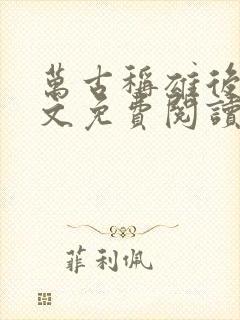 萬古稱雄後
文免費閱讀
菲利佩